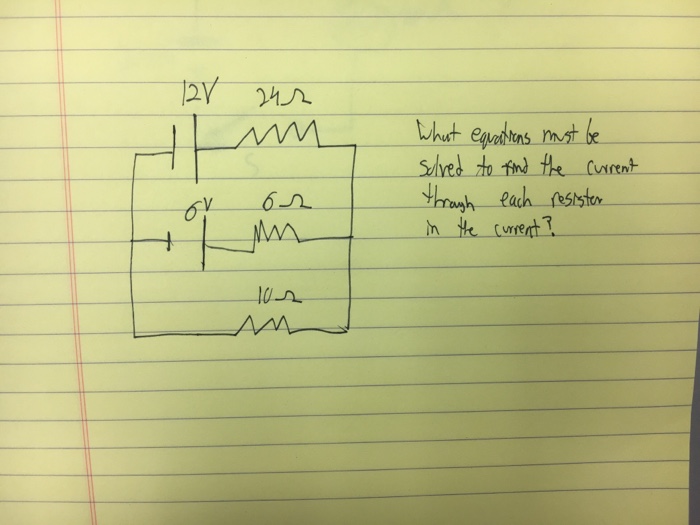 12V 24Ω
What equations must be
solved to find the current
through each resistor
in the current?
6V 6Ω
10Ω